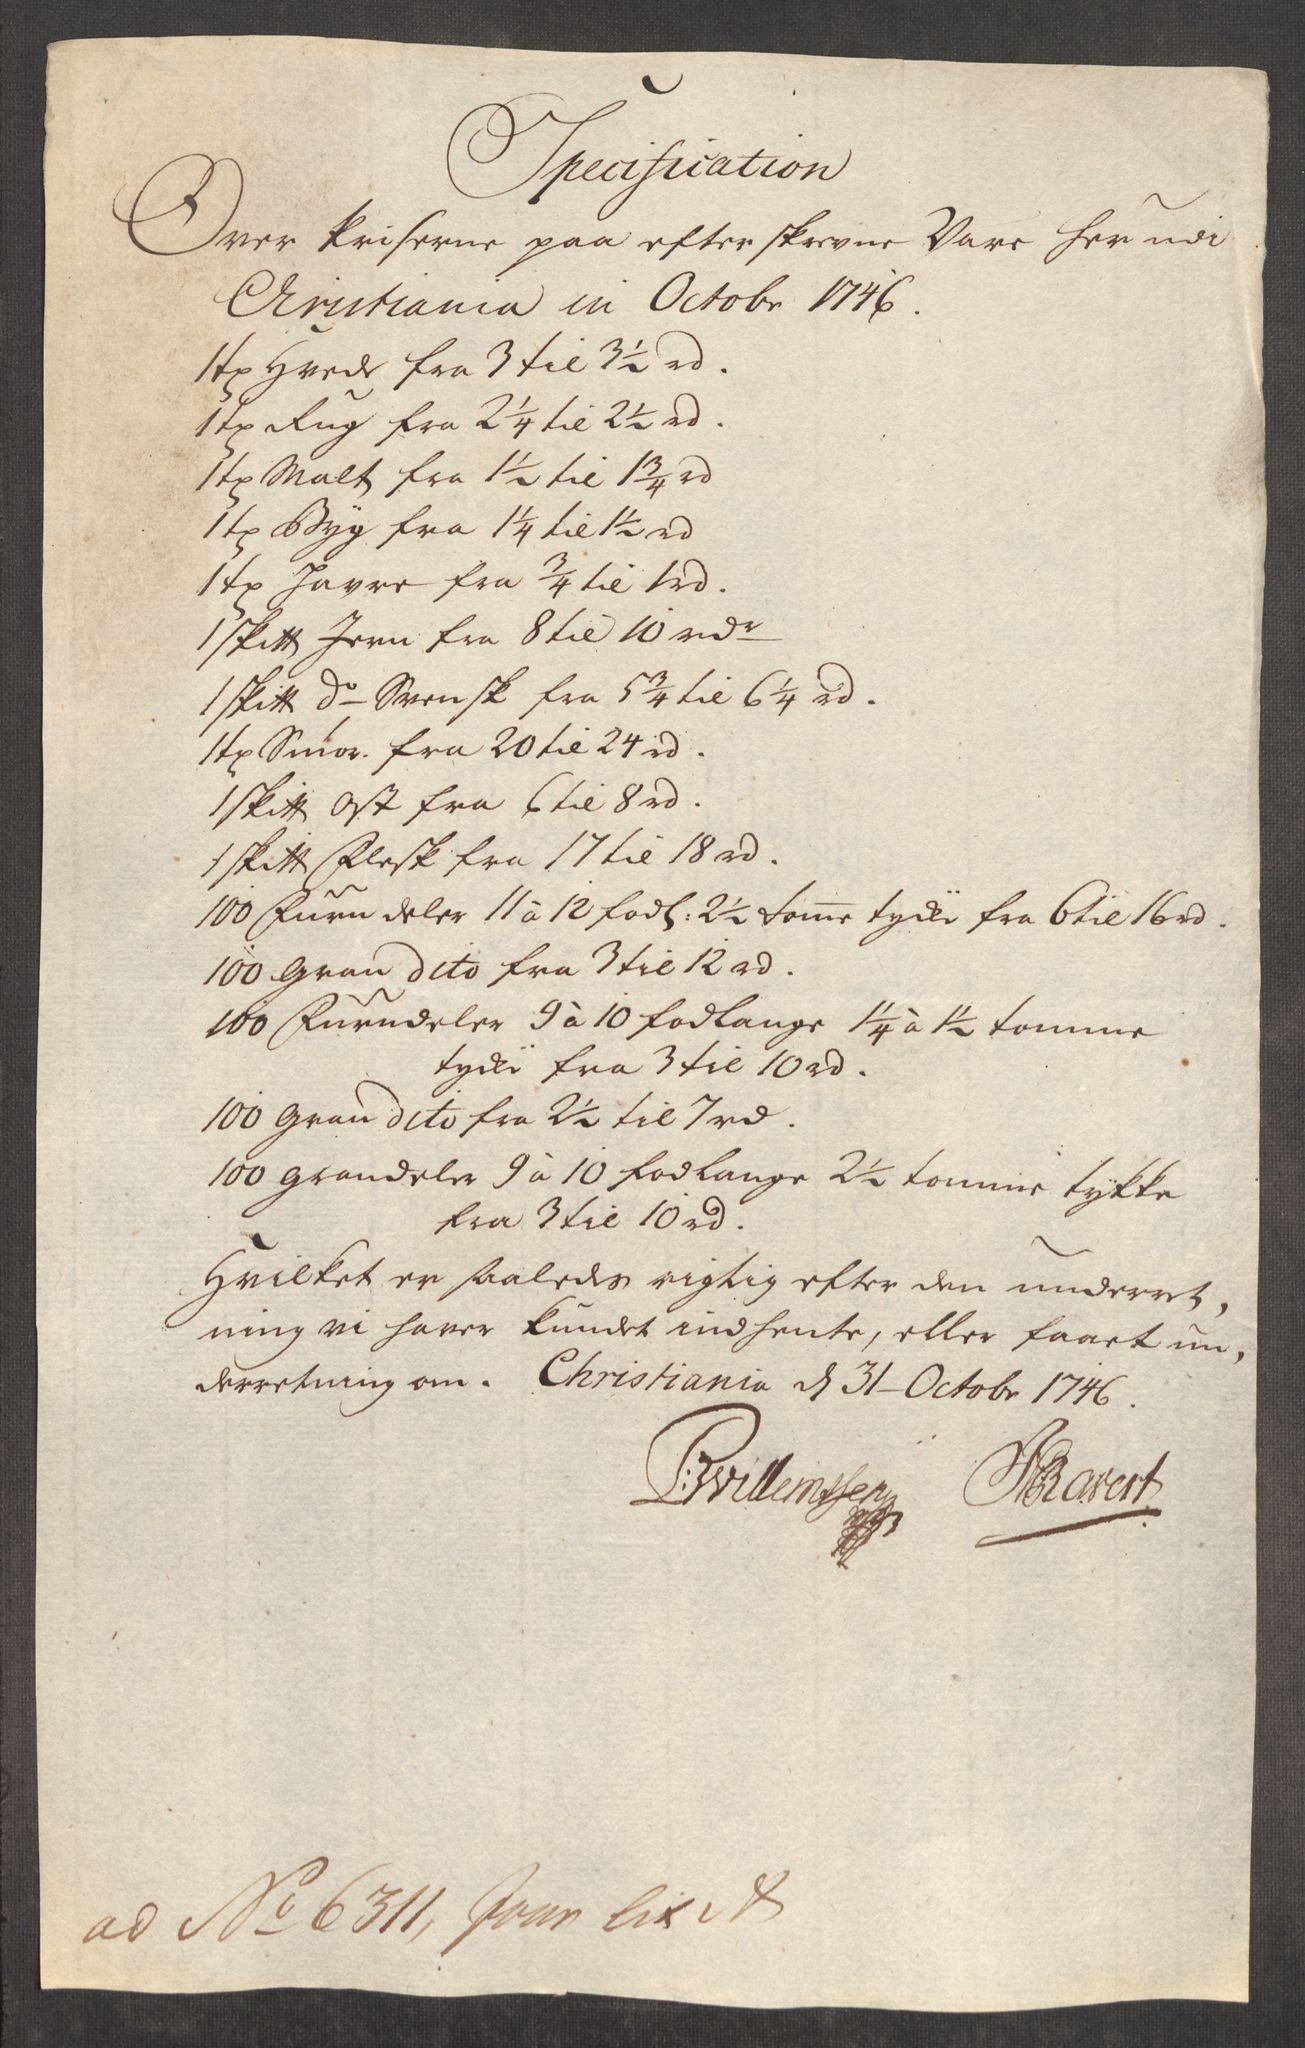 Specification
Over Priserne paa efterskrevne Vare her udi
Christiania in Octobr 1746.
1 tø Hvede fra 3 til 3½ rd.
1 tø Rug fra 2¼ til 2½ rd.
1 tø Malt fra 1½ til 1¾ rd
1 tø Byg fra 1¼ til 1½ rd
1 tø Havre fra ¾ til 1 rd.
1 ski℔ Jern fra 8 til 10 rdr
1 ski℔ do Svensk fra 5¾ til 6¼ rd.
1 tø Smør. fra 20 til 24 rd.
1 ski℔ Ost fra 6 til 8 rd.
1 ski℔ Flesk fra 17 til 18 rd.
100 Furu deler 11 à 12 fodl: 2½ tomme tycke fra 6 til 16 rd.
100 Gran dito fra 3 til 12 rd.
100 Furudeler 9 à 10 fodlange 1¼ à 1½ tomme
tycke fra 3 til 10 rd.
100 Gran dito fra 2½ til 7 rd.
100 Grandeler 9 à 10 fodlange 2½ tomme tykke
fra 3 til 10 rd.
Hvilket er saaledes rigtig efter den underret,
ning vi haver kundet indhente, eller faaet un,
derretning om. Christiania d 31 Octobr 1746.
Willemssen Ravert
ad No 6311, Jour lit A